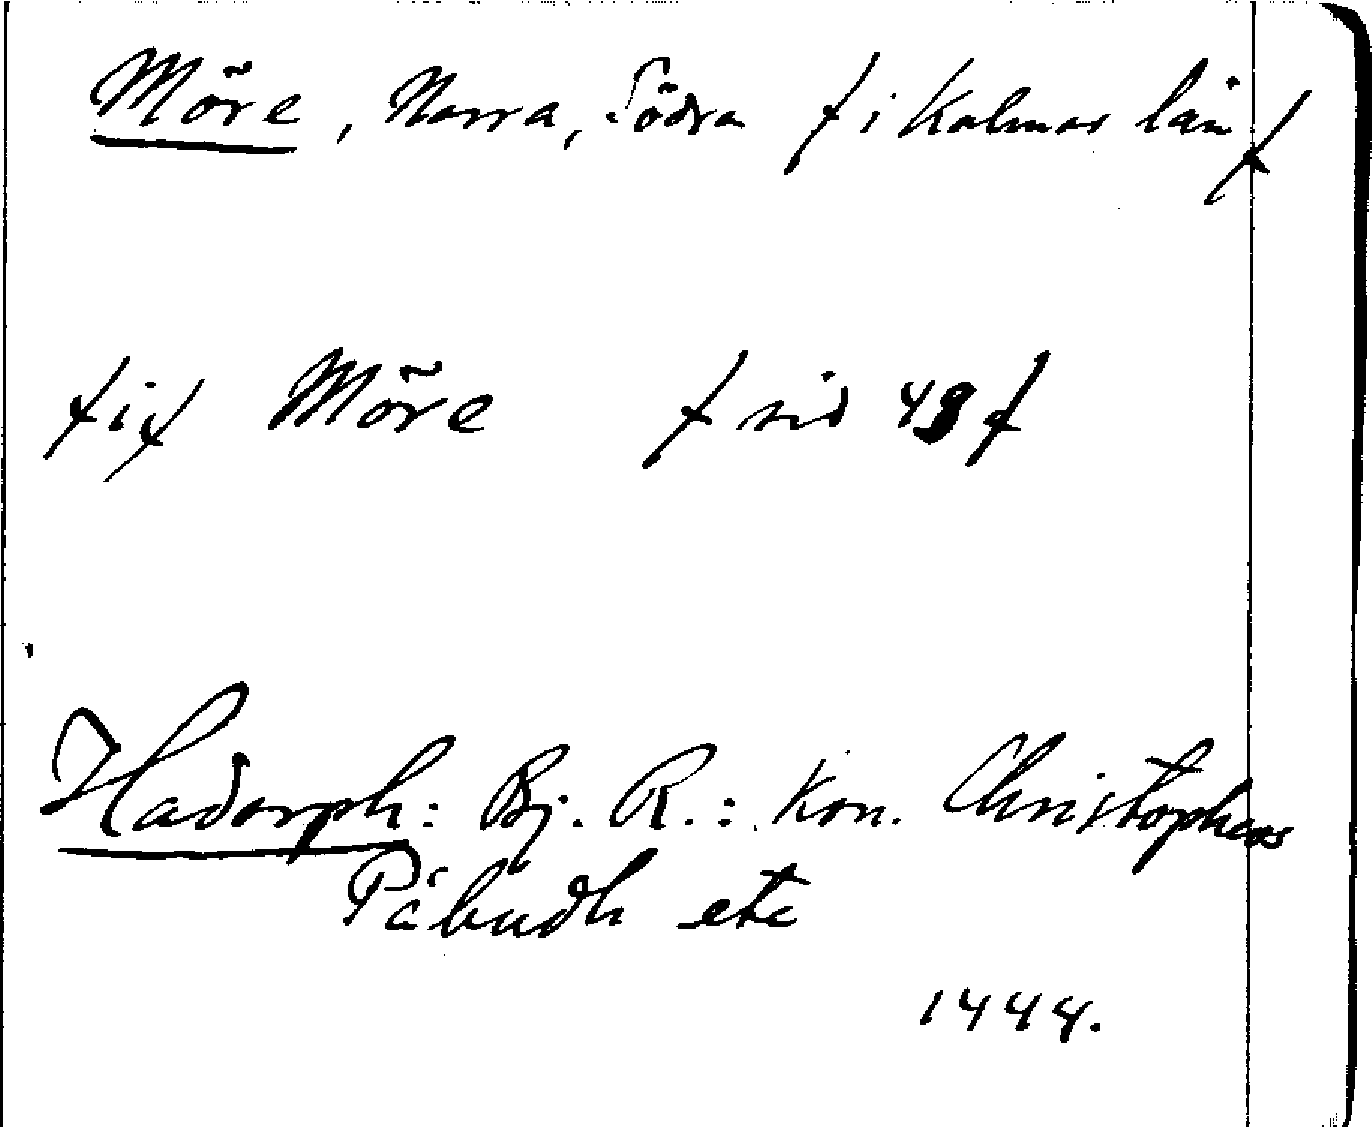 Möre, Norra, Södra / i Kalmar län /
/ i / Möre / sid 48 /
Hadorph: Bj. R.: Kon. Christophers
Påbudh etc
1444.